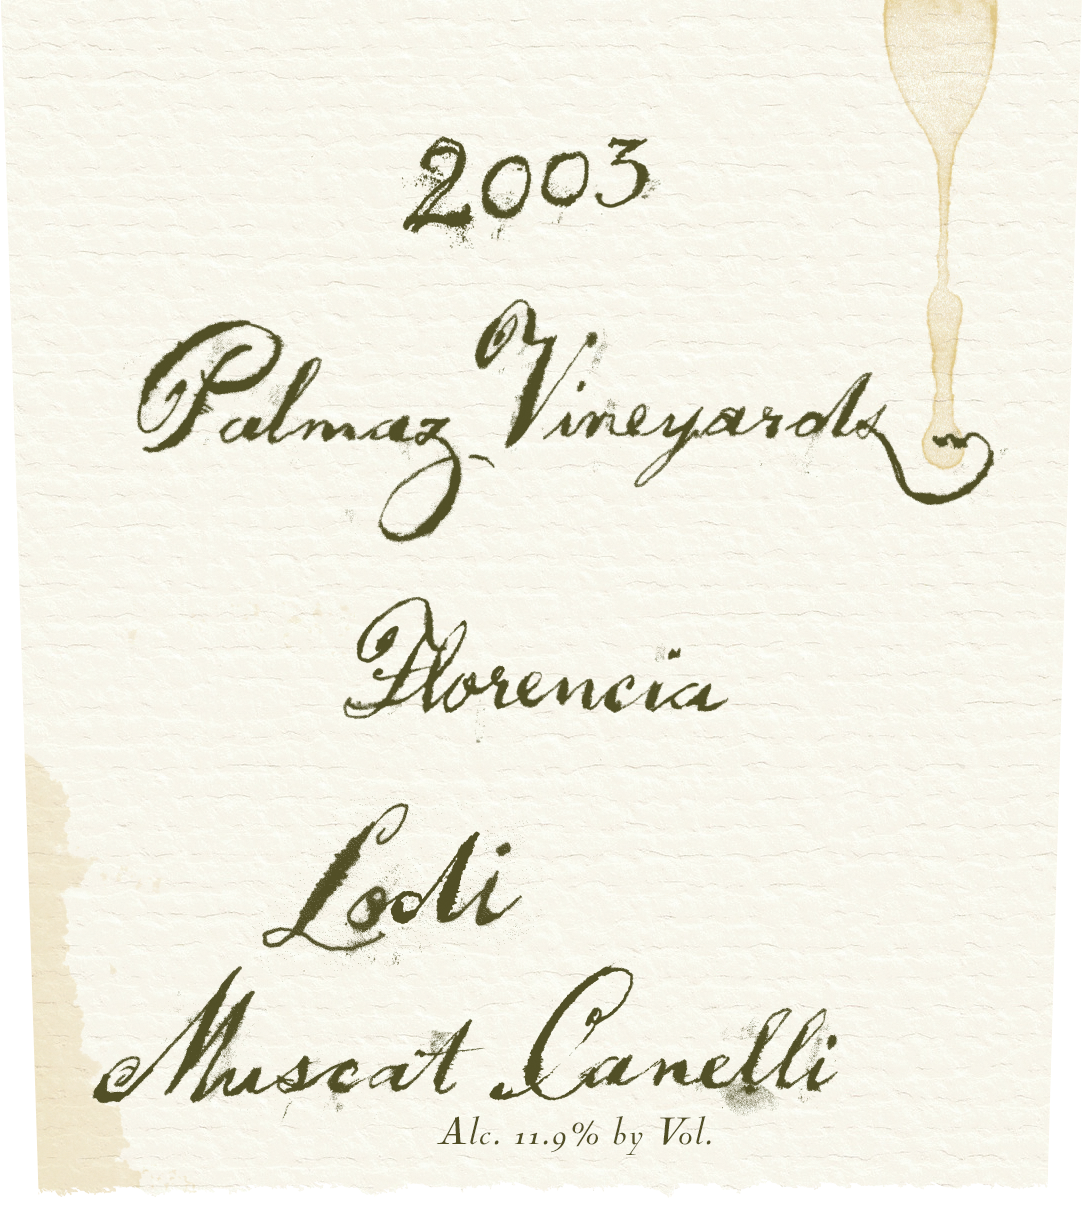 2003
Palmaz Vineyards
Florencia
Lodi
Muscat Canelli
Alc. 11.9% by Vol.